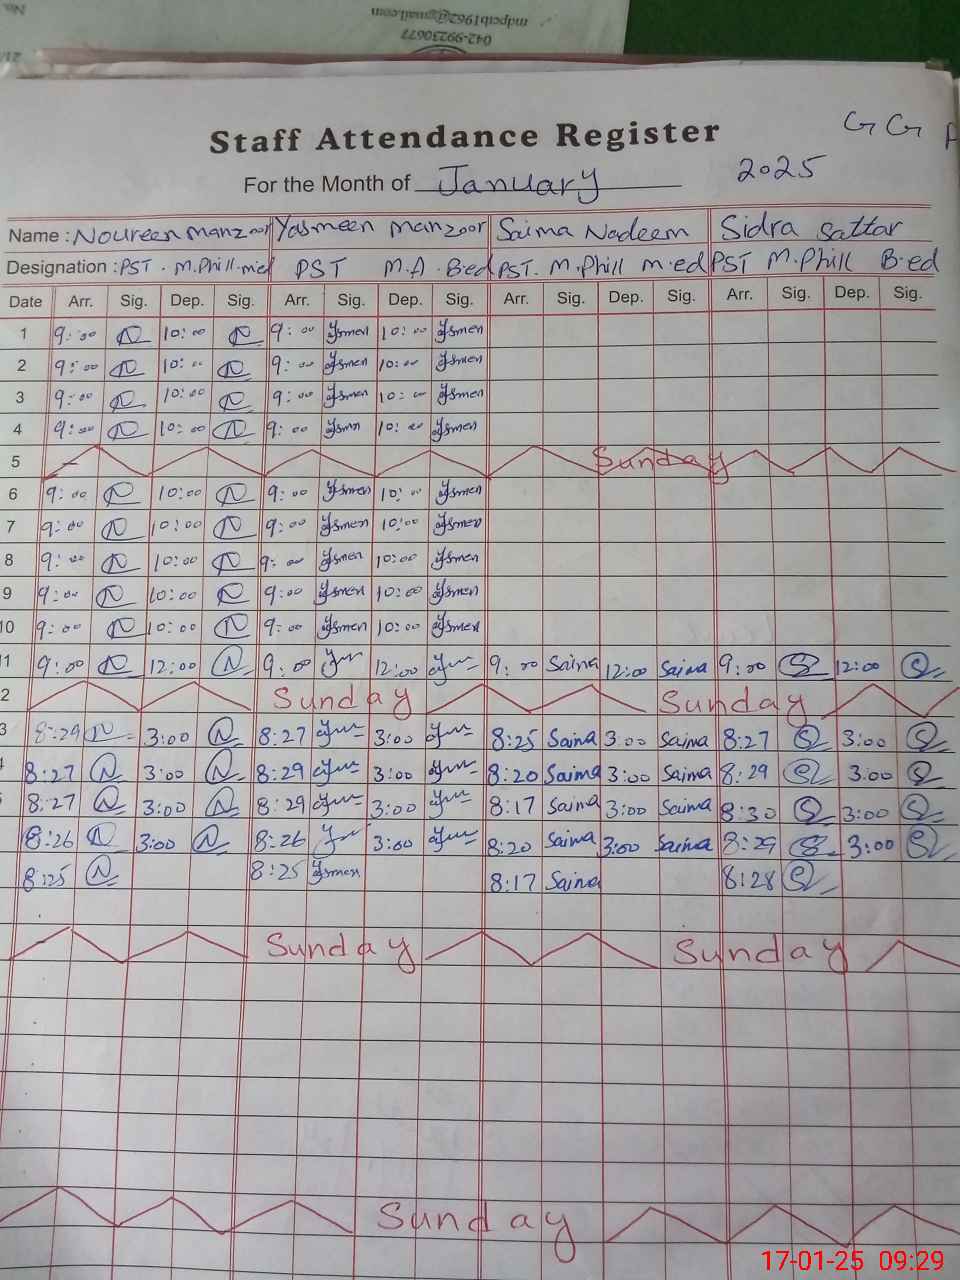 mdpcib1962@gmail.com
042-99230677
No.
Staff Attendance Register
G G
For the Month of January 2025
Name : Noureen Manzoor Yasmeen Manzoor Saima Nadeem Sidra Sattar
Designation : PST . M.Phill. med PST M.A . B.ed PST. M.Phill m.ed PST M.Phill B.ed
Date Arr. Sig. Dep. Sig. Arr. Sig. Dep. Sig. Arr. Sig. Dep. Sig. Arr. Sig. Dep. Sig.
1 9:00 N 10:00 N 9:00 Ysmen 10:00 Ysmen
2 9:00 N 10:00 N 9:00 Ysmen 10:00 Ysmen
3 9:00 N 10:00 N 9:00 Ysmen 10:00 Ysmen
4 9:00 N 10:00 N 9:00 Ysmn 10:00 Ysmen
5 Sunday
6 9:00 N 10:00 N 9:00 Ysmen 10:00 Ysmen
7 9:00 N 10:00 N 9:00 Ysmen 10:00 Ysmen
8 9:00 N 10:00 N 9:00 Ysmen 10:00 Ysmen
9 9:00 N 10:00 N 9:00 Ysmen 10:00 Ysmen
10 9:00 N 10:00 N 9:00 Ysmen 10:00 Ysmen
11 9:00 N 12:00 N 9:00 12:00 9:00 Saima 12:00 Saima 9:00 S 12:00 S
2 Sunday Sunday
3 8:29 N 3:00 N 8:27 3:00 8:25 Saima 3:00 Saima 8:27 S 3:00 S
8:27 N 3:00 N 8:29 3:00 8:20 Saima 3:00 Saima 8:29 S 3:00 S
8:27 N 3:00 N 8:29 3:00 8:17 Saima 3:00 Saima 8:30 S 3:00 S
8:26 N 3:00 N 8:26 3:00 8:20 Saima 3:00 Saima 8:29 S 3:00 S
8:25 N 8:25 Ysmen 8:17 Saima 8:28 S
Sunday Sunday
Sunday
17-01-25 09:29